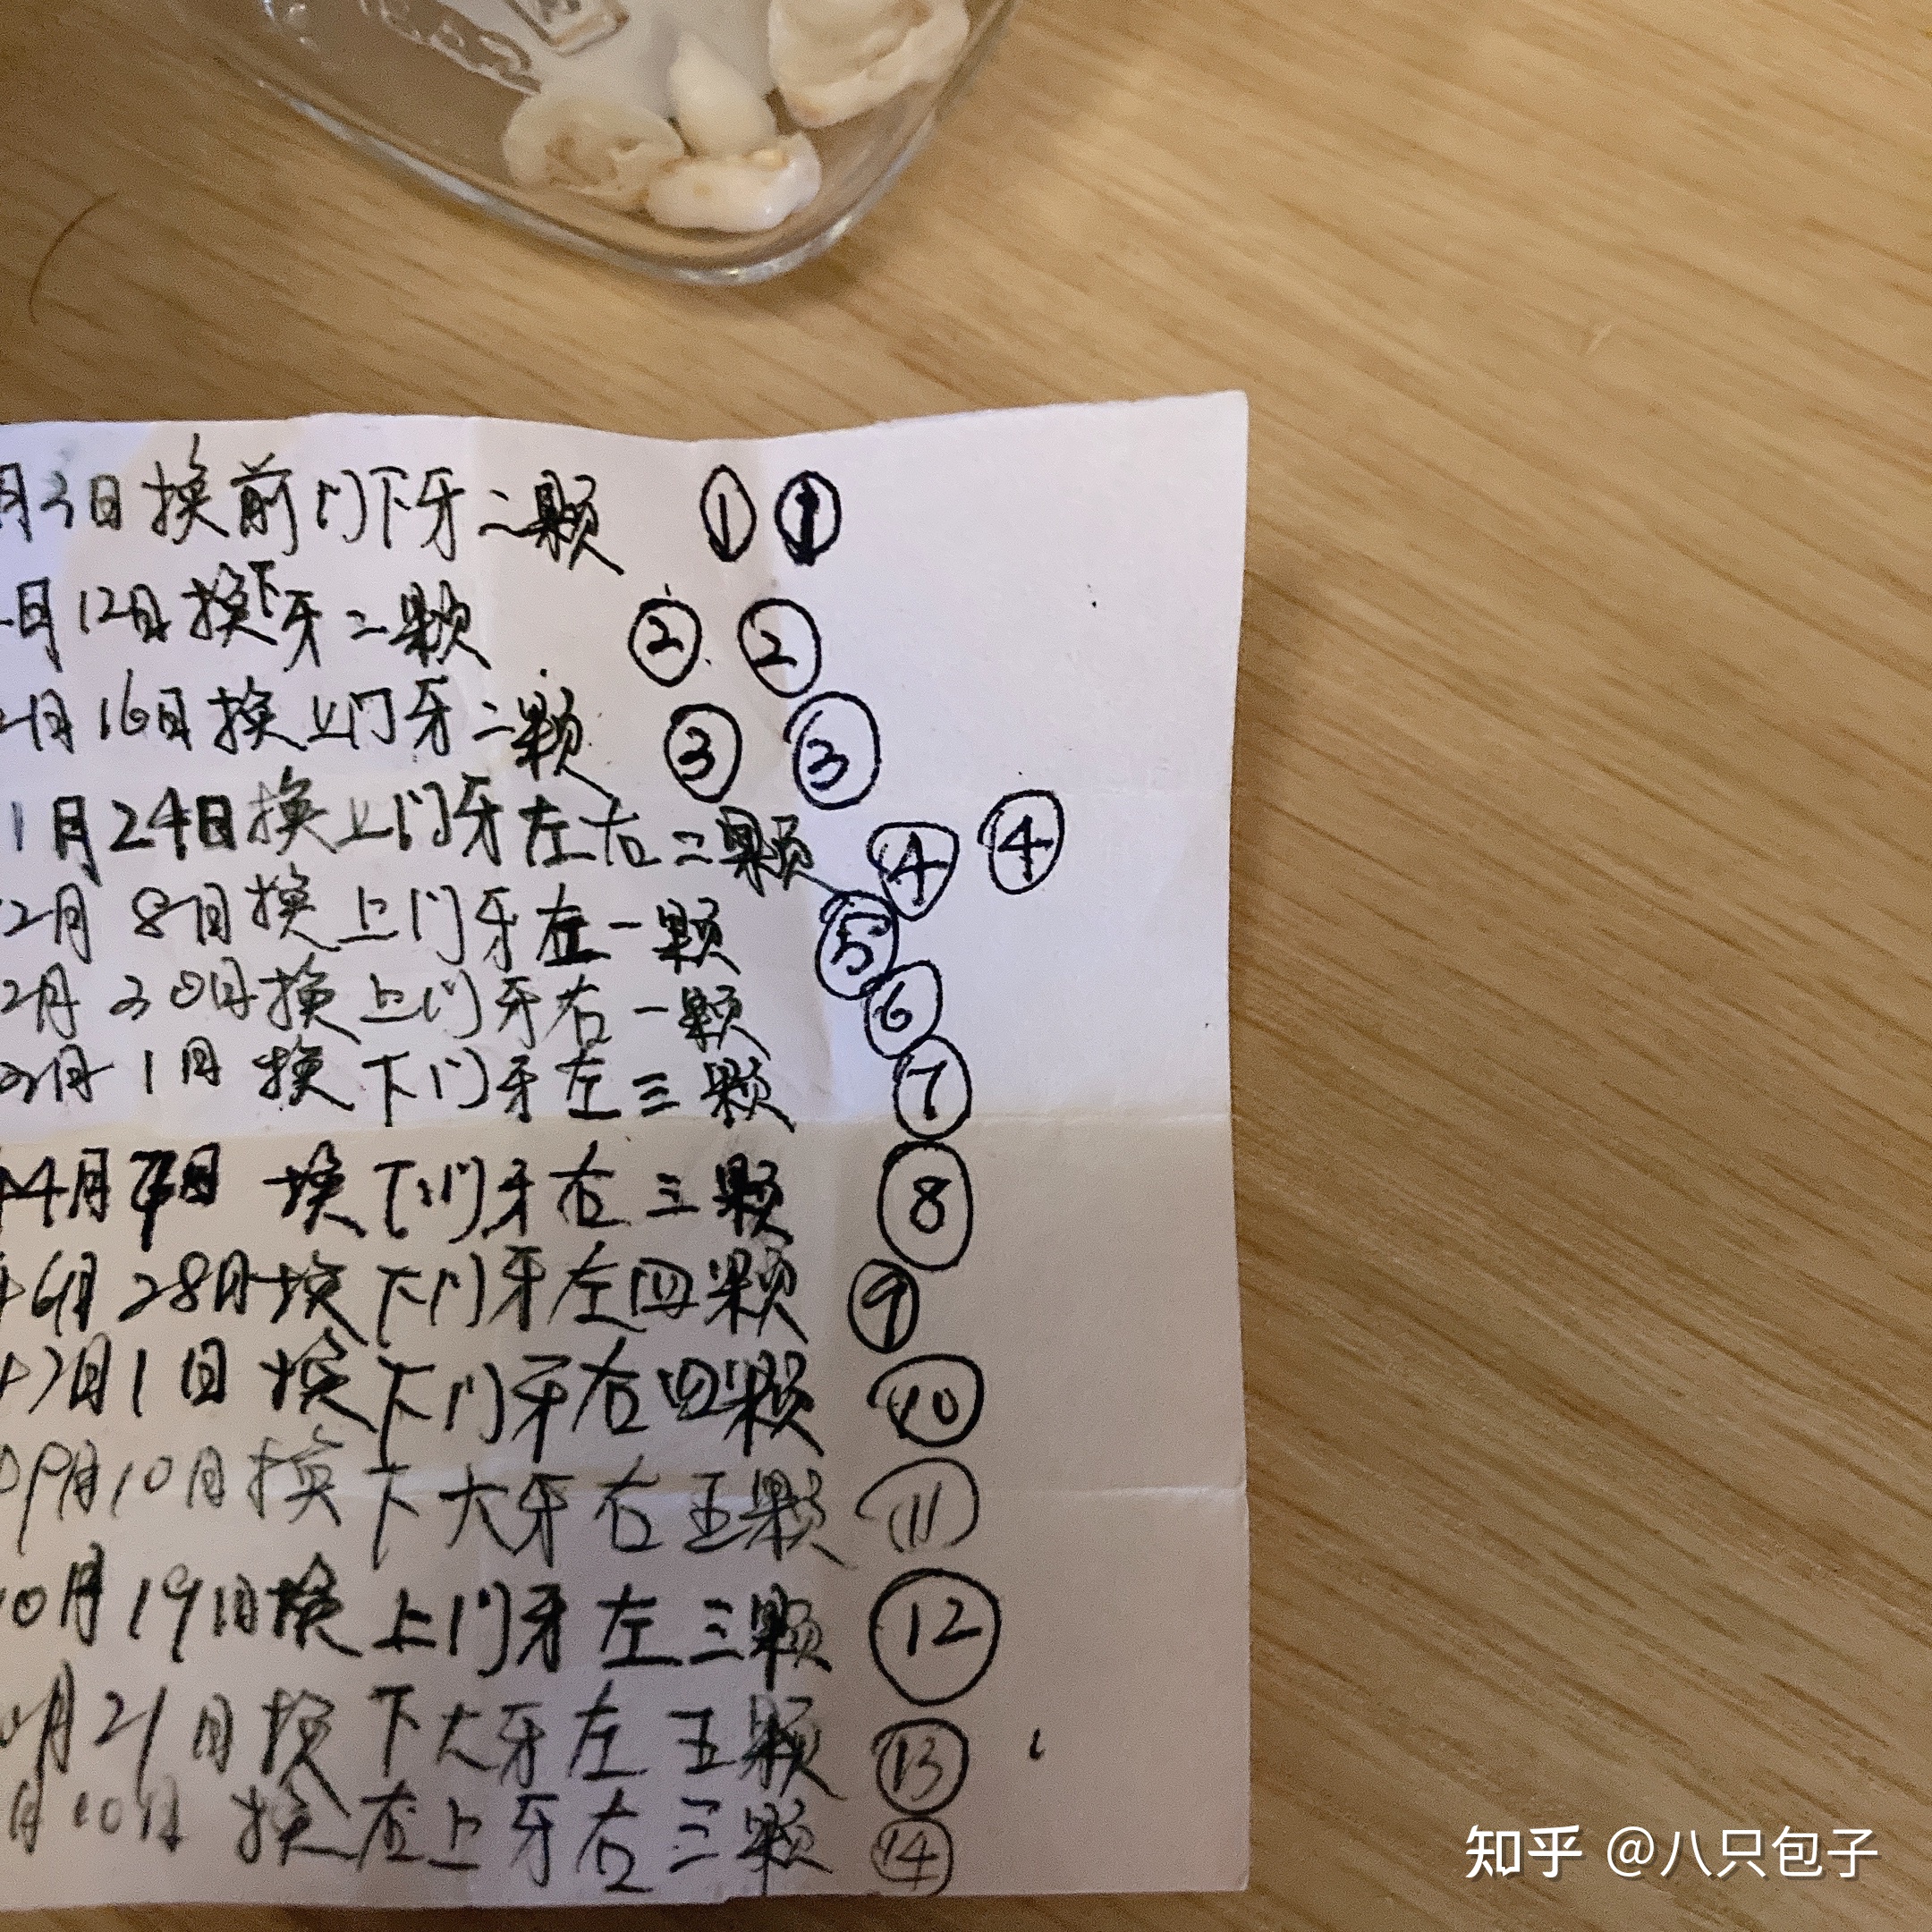 月3日换前门下牙二颗 ① ①
月12日换下牙二颗 ② ②
2月16日换上门牙二颗 ③ ③
1月24日换上门牙左右二颗 ④ ④
2月8日换上门牙左一颗 ⑤
2月20日换上门牙右一颗 ⑥
3月1日换下门牙左三颗 ⑦
4月 日换下门牙右三颗 ⑧
6月28日换下门牙左四颗 ⑨
7月1日换下门牙右四颗 ⑩
9月10日换下大牙右五颗 ⑪
10月19日换上门牙左三颗 ⑫
月21日换下大牙左五颗 ⑬
月10日换 上牙右三颗 ⑭
知乎 @八只包子